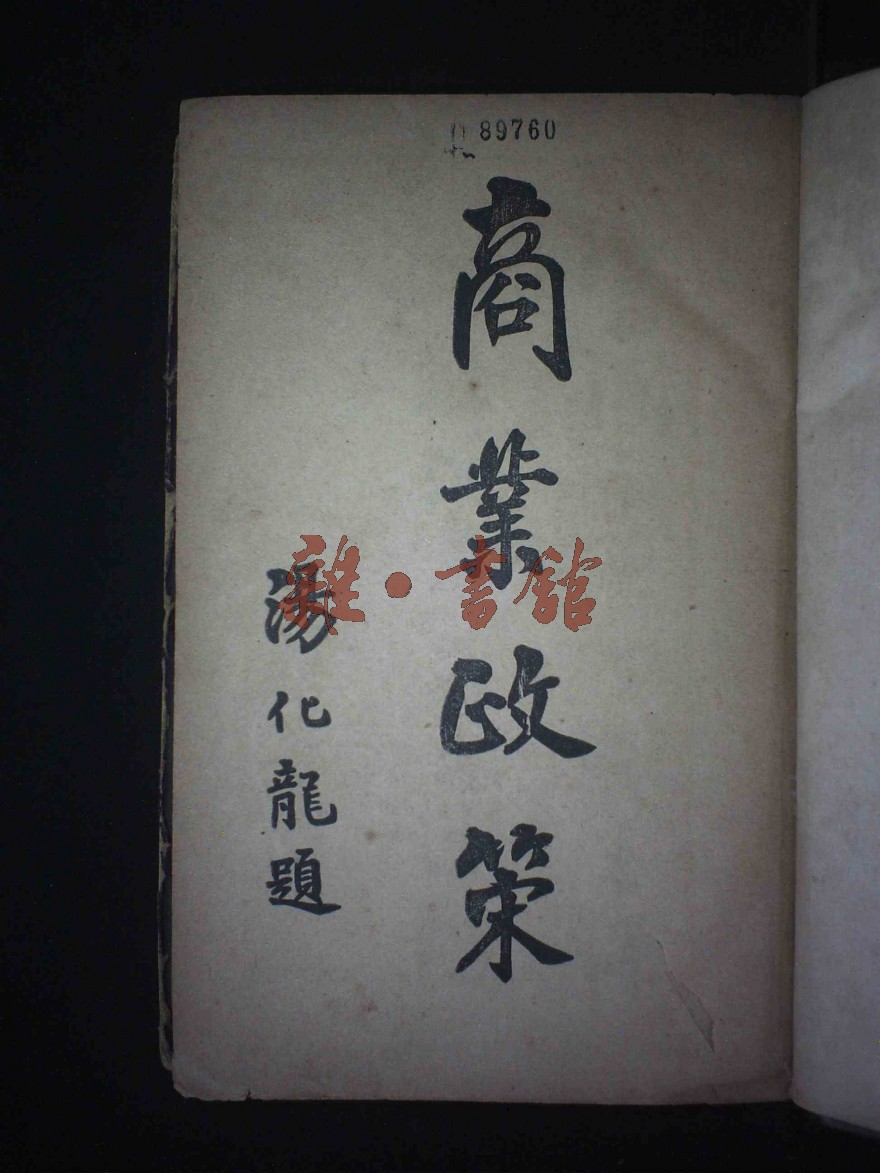 89760
商業政策
湯化龍題
雜·書館